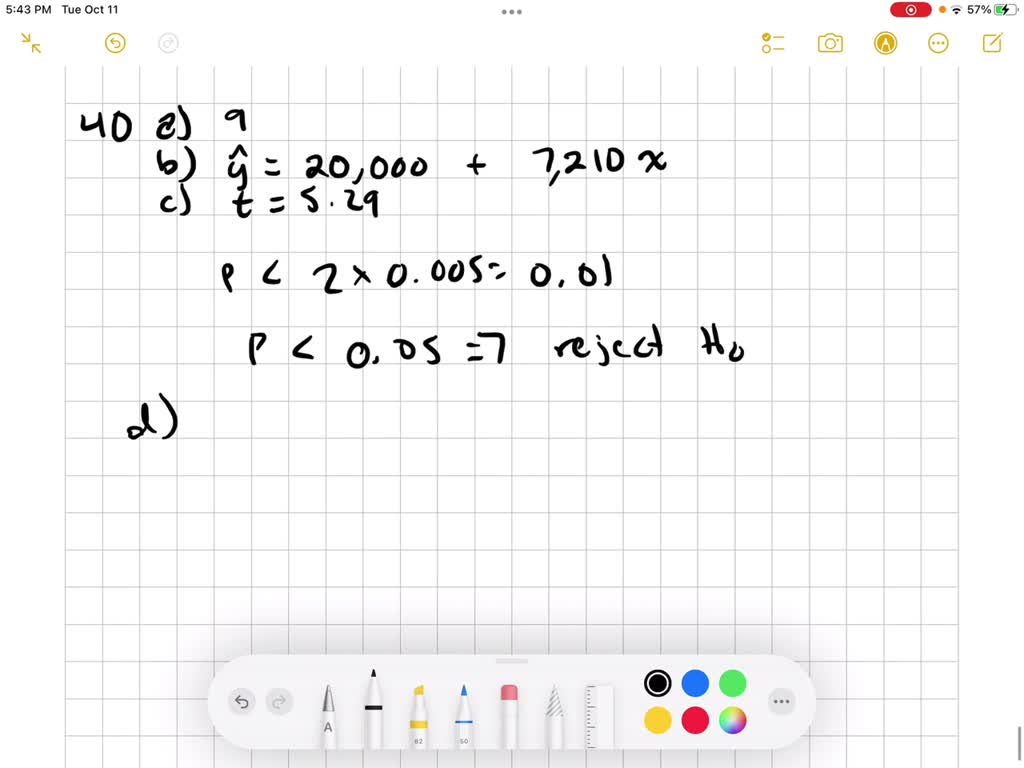 5:43 PM Tue Oct 11
57%
40 a) 9
b) ŷ = 20,000 + 7,210 x
c) t = 5.29
P < 2 × 0.005 = 0.01
P < 0.05 => reject H₀
d)
A
82
50